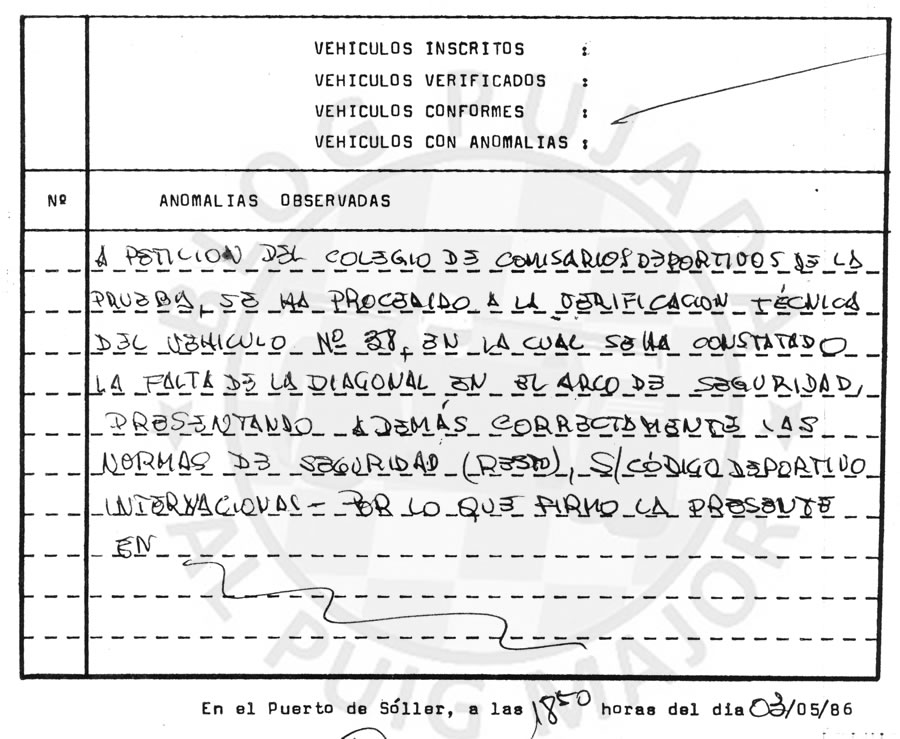 VEHICULOS INSCRITOS :
VEHICULOS VERIFICADOS :
VEHICULOS CONFORMES :
VEHICULOS CON ANOMALIAS :
Nº ANOMALIAS OBSERVADAS
A PETICION DEL COLEGIO DE COMISARIOS DEPORTIVOS DE LA
PRUEBA, SE HA PROCEDIDO A LA VERIFICACION TÉCNICA
DEL VEHICULO Nº 38, EN LA CUAL SE HA CONSTATADO
LA FALTA DE LA DIAGONAL EN EL ARCO DE SEGURIDAD,
PRESENTANDO ADEMÁS CORRECTAMENTE LAS
NORMAS DE SEGURIDAD (RESTO), S/CÓDIGO DEPORTIVO
INTERNACIONAL - POR LO QUE FIRMO LA PRESENTE
EN
En el Puerto de Sóller, a las 18 50 horas del dia 03/05/86
BLOG PUJADA
AL PUIG MAJOR